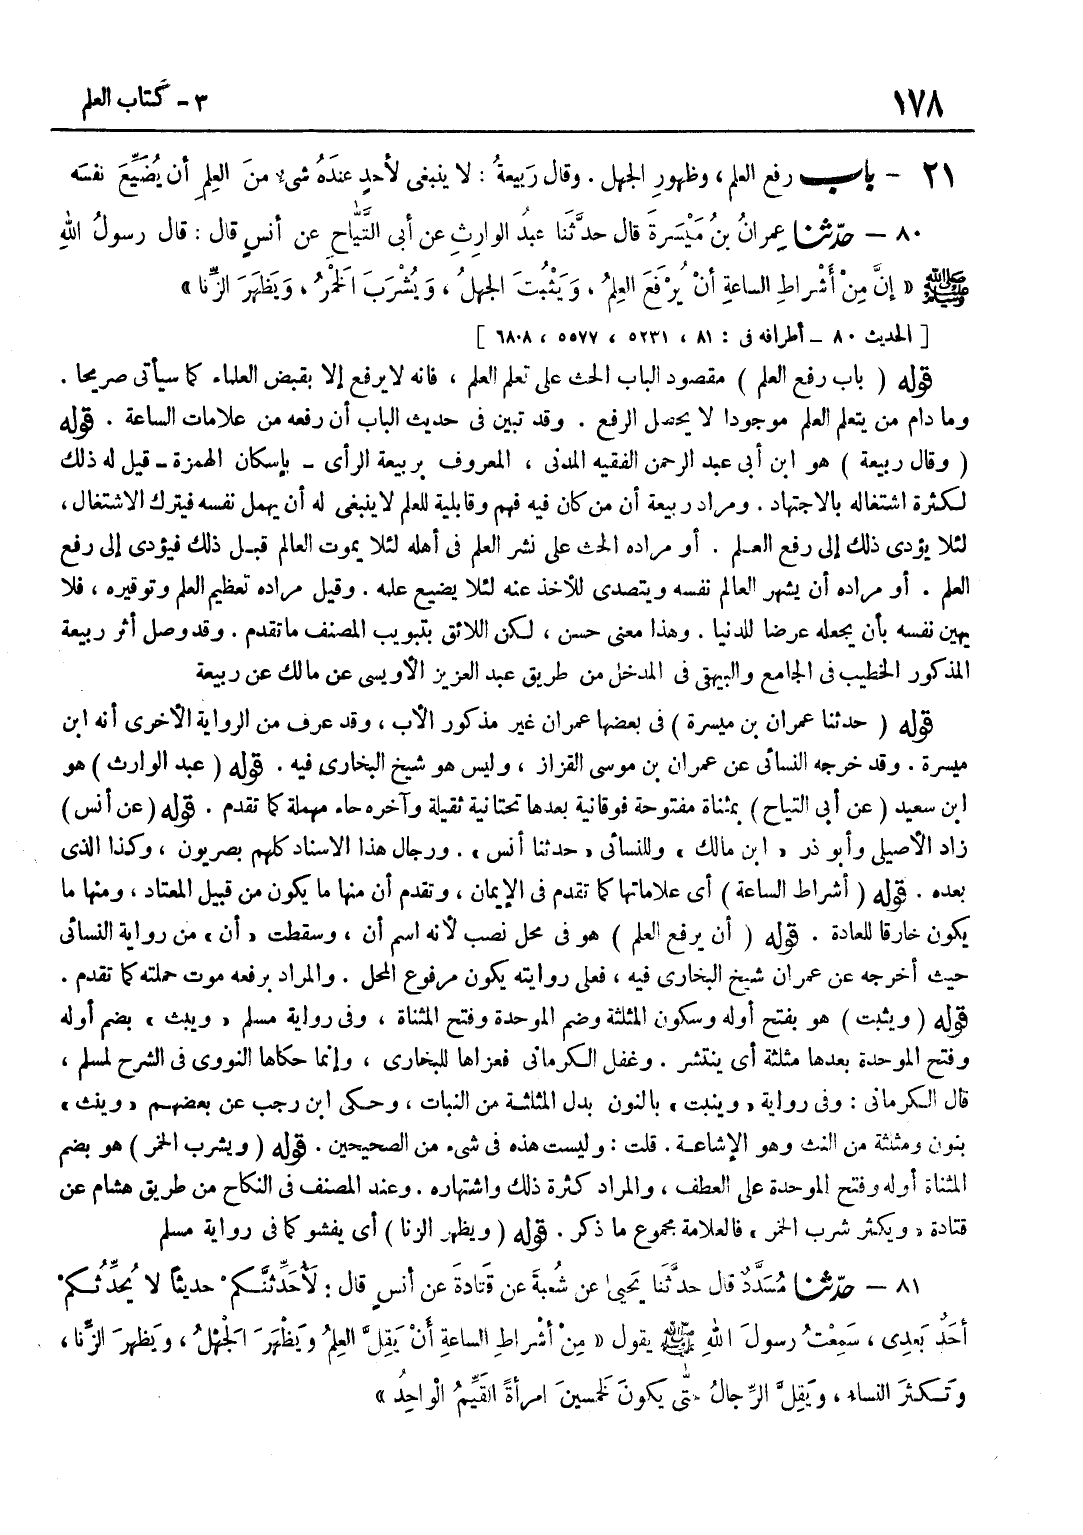 ١٧٨
٣ - كتاب العلم
٢١ - باب رفع العلم ، وظهورِ الجهل . وقال رَبيعةُ : لا ينبغى لأحدٍ عندَهُ شىء منَ العِلمِ أن يُضَيِّعَ نفسَه
٨٠ — حدّثنا عِمرانُ بنُ مَيْسَرةَ قال حدَّثَنا عبدُ الوارِثِ عن أبى التَّيَّاحِ عن أنسٍ قال : قال رسولُ اللهِ
ﷺ « إنَّ مِنْ أَشْراطِ الساعةِ أنْ يُرْفَعَ العِلمُ ، وَيَثْبُتَ الجهلُ ، وَيُشْرَبَ الخمْرُ ، وَيَظهَرَ الزِّنا »
[ الحديث ٨٠ _ أطرافه فى : ٨١ ، ٥٢٣١ ، ٥٥٧٧ ، ٦٨٠٨ ]
قوله ( باب رفع العلم ) مقصود الباب الحث على تعلم العلم ، فانه لا يرفع إلا بقبض العلماء كما سيأتى صريحا .
وما دام من يتعلم العلم موجودا لا يحصل الرفع . وقد تبين فى حديث الباب أن رفعه من علامات الساعة . قوله
( وقال ربيعة ) هو ابن أبى عبد الرحمن الفقيه المدنى ، المعروف بربيعة الرأى _ بإسكان الهمزة _ قيل له ذلك
لكثرة اشتغاله بالاجتهاد . ومراد ربيعة أن من كان فيه فهم وقابلية للعلم لا ينبغى له أن يهمل نفسه فيترك الاشتغال ،
لئلا يؤدى ذلك إلى رفع العلم . أو مراده الحث على نشر العلم فى أهله لئلا يموت العالم قبل ذلك فيؤدى إلى رفع
العلم . أو مراده أن يشهر العالم نفسه ويتصدى للأخذ عنه لئلا يضيع علمه . وقيل مراده تعظيم العلم وتوقيره ، فلا
يهين نفسه بأن يجعله عرضا للدنيا . وهذا معنى حسن ، لكن اللائق بتبويب المصنف ما تقدم . وقد وصل أثر ربيعة
المذكور الخطيب فى الجامع والبيهقى فى المدخل من طريق عبد العزيز الأويسى عن مالك عن ربيعة
قوله ( حدثنا عمران بن ميسرة ) فى بعضها عمران غير مذكور الأب ، وقد عرف من الرواية الأخرى أنه ابن
ميسرة . وقد خرجه النسائى عن عمران بن موسى القزاز ، وليس هو شيخ البخارى فيه . قوله ( عبد الوارث ) هو
ابن سعيد ( عن أبى التياح ) بمثناة مفتوحة فوقانية بعدها تحتانية ثقيلة وآخره حاء مهملة كما تقدم . قوله ( عن أنس )
زاد الأصيلى وأبو ذر « ابن مالك » وللنسائى « حدثنا أنس » . ورجال هذا الاسناد كلهم بصريون ، وكذا الذى
بعده . قوله ( أشراط الساعة ) أى علاماتها كما تقدم فى الإيمان ، وتقدم أن منها ما يكون من قبيل المعتاد ، ومنها ما
يكون خارقا للعادة . قوله ( أن يرفع العلم ) هو فى محل نصب لأنه اسم أن ، وسقطت « أن » من رواية النسائى
حيث أخرجه عن عمران شيخ البخارى فيه ، فعلى روايته يكون مرفوع المحل . والمراد برفعه موت حملته كما تقدم .
قوله ( ويثبت ) هو بفتح أوله وسكون المثلثة وضم الموحدة وفتح المثناة ، وفى رواية مسلم « ويبث » بضم أوله
وفتح الموحدة بعدها مثلثة أى ينتشر . وغفل الكرمانى فعزاها للبخارى ، وإنما حكاها النووى فى الشرح لمسلم ،
قال الكرمانى : وفى رواية « وينبت » بالنون بدل المثلثة من النبات ، وحكى ابن رجب عن بعضهم « وينث »
بنون ومثلثة من النث وهو الإشاعة . قلت : وليست هذه فى شىء من الصحيحين . قوله ( ويشرب الخمر ) هو بضم
المثناة أوله وفتح الموحدة على العطف ، والمراد كثرة ذلك واشتهاره . وعند المصنف فى النكاح من طريق هشام عن
قتادة « ويكثر شرب الخمر » فالعلامة مجموع ما ذكر . قوله ( ويظهر الزنا ) أى يفشو كما فى رواية مسلم
٨١ — حدّثنا مُسَدَّدٌ قال حدثَنا يَحيىٰ عن شُعبةَ عن قَتادةَ عن أنسٍ قال : لَأُحَدِّثنَّكمْ حديثاً لا يُحدِّثُكمْ
أحَدٌ بَعدِى ، سَمِعْتُ رسولَ اللهِ ﷺ يقول « مِنْ أشْراطِ الساعةِ أَنْ يَقِلَّ العِلمُ ويَظْهَرَ الجَهْلُ ، ويَظهرَ الزِّنا ،
وتَكثرَ النساء ، ويَقِلَّ الرِّجالُ حتَّى يكونَ لخمسينَ امرأةً القَيِّمُ الْواحِدُ »